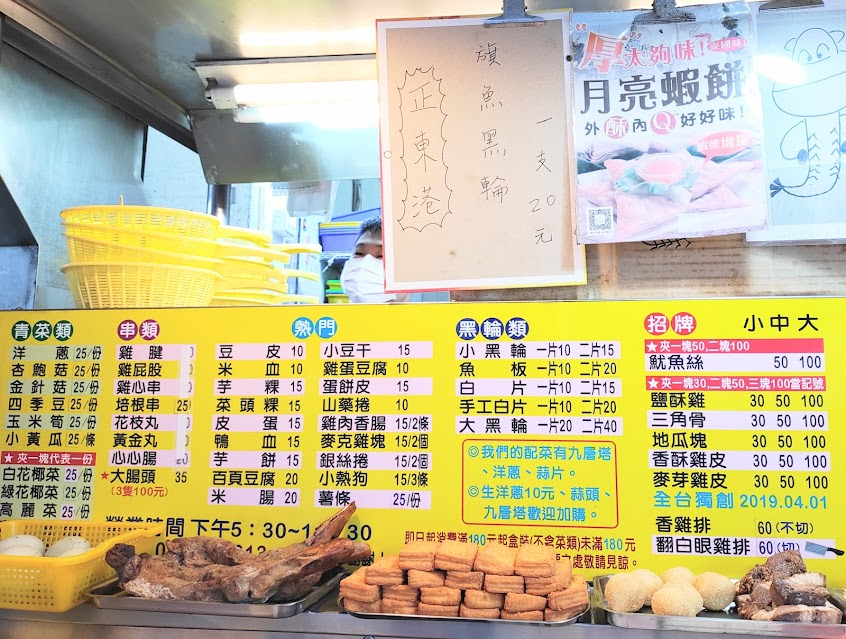 旗魚黑輪
一支20元
正東港
厚太夠味!
月亮蝦餅
外酥內Q好好味!
青菜類
洋蔥 25/份
杏鮑菇 25/份
金針菇 25/份
四季豆 25/份
玉米筍 25/份
小黃瓜 25/條
★夾一塊代表一份
白花椰菜 25/份
綠花椰菜 25/份
高麗菜 25/份
串類
雞腱
雞屁股
雞心串
培根串 25
花枝丸
黃金丸
心心腸
★大腸頭 35
(3隻100元)
熱門
豆皮 10
米血 10
芋粿 15
菜頭粿 15
皮蛋 15
鴨血 15
芋餅 15
百頁豆腐 20
米腸 20
小豆干 15
雞蛋豆腐 10
蛋餅皮 15
山藥捲 10
雞肉香腸 15/2條
麥克雞塊 15/2個
銀絲捲 15/2個
小熱狗 15/3條
薯條 25/份
黑輪類
小黑輪 一片10 二片15
魚板 一片10 二片20
白片 一片10 二片15
手工白片 一片10 二片20
大黑輪 一片20 二片40
◎我們的配菜有九層塔
、洋蔥、蒜片。
◎生洋蔥10元、蒜頭、
九層塔歡迎加購。
招牌 小 中 大
★夾一塊50,二塊100
魷魚絲 50 100
★夾一塊30,二塊50,三塊100當記號
鹽酥雞 30 50 100
三角骨 30 50 100
地瓜塊 30 50 100
香酥雞皮 30 50 100
麥芽雞皮 30 50 100
全台獨創 2019.04.01
香雞排 60(不切)
翻白眼雞排 60(切)
營業時間 下午5:30~1 :30
即日起消費滿180元起盒裝(不含菜類)未滿180元
感謝見諒。